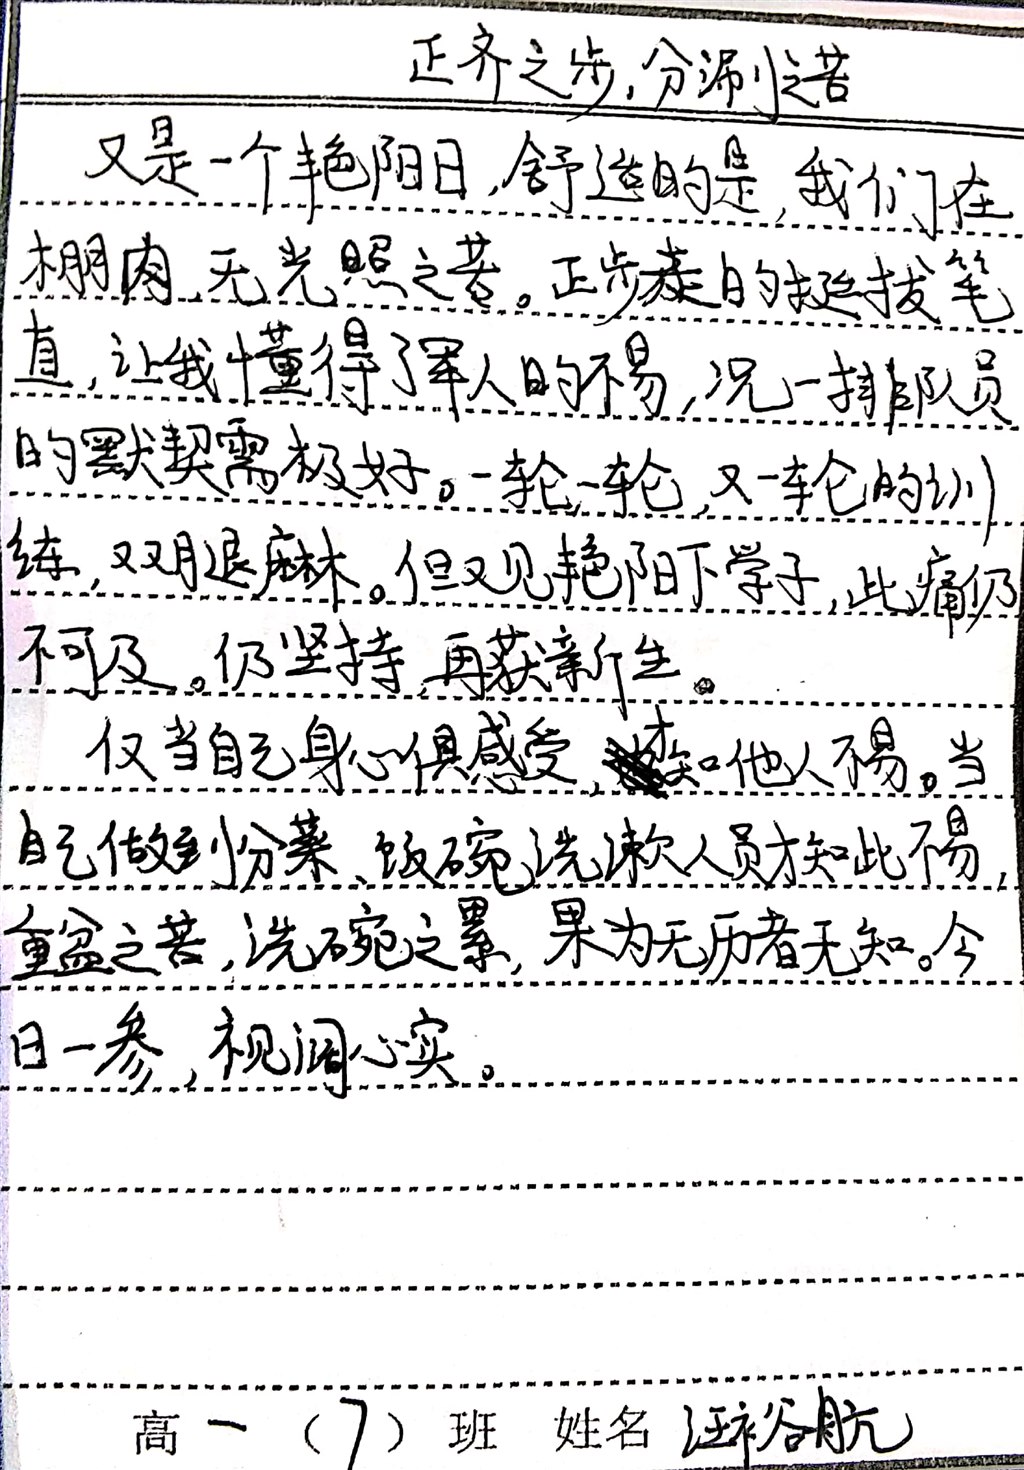 正齐之步,分涮之苦
又是一个艳阳日,舒适的是,我们在
棚内,无光照之苦。正步走的挺拔笔
直,让我懂得了军人的不易,况一排队员
的默契需极好。一轮,一轮,又一轮的训
练,双腿麻。但又见艳阳下学子,此痛仍
不可及。仍坚持,再获新生。
仅当自己身心俱感受,才知他人不易。当
自己做到分菜、饭碗洗漱人员才知此不易,
重盆之苦,洗碗之累,果为无历者无知。今
日一参,视阔心实。
高一(7)班 姓名 汪裕航